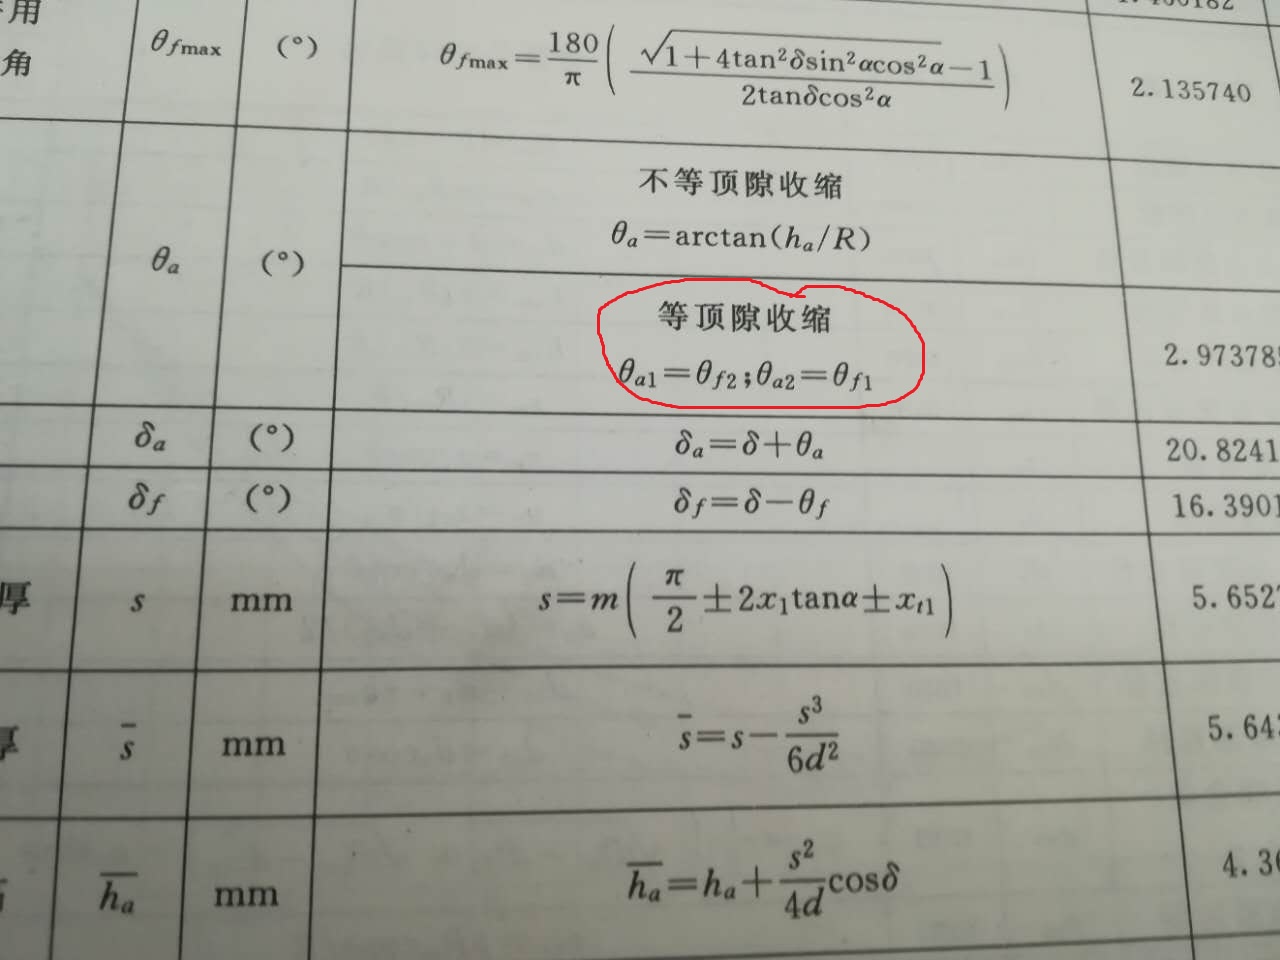 用
角
θfmax
(°)
θfmax=180/π(√(1+4tan²δsin²αcos²α)−1/2tanδcos²α)
2.135740
不等顶隙收缩
θa=arctan(ha/R)
θa
(°)
等顶隙收缩
θa1=θf2;θa2=θf1
2.97378
δa
(°)
δa=δ+θa
20.8241
δf
(°)
δf=δ−θf
16.3901
厚
s
mm
s=m(π/2±2x1tanα±xt1)
5.652
厚
s̄
mm
s̄=s−s³/6d²
5.64
h̄a
mm
h̄a=ha+s²/4d cosδ
4.3